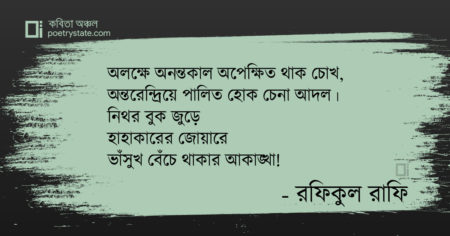 কবিতা অঞ্চল
poetrystate.com
অলক্ষে অনন্তকাল অপেক্ষিত থাক চোখ,
অন্তরেন্দ্রিয়ে পালিত হোক চেনা আদল।
নিথর বুক জুড়ে
হাহাকারের জোয়ারে
ভাঁসুখ বেঁচে থাকার আকাঙ্খা!
- রফিকুল রাফি